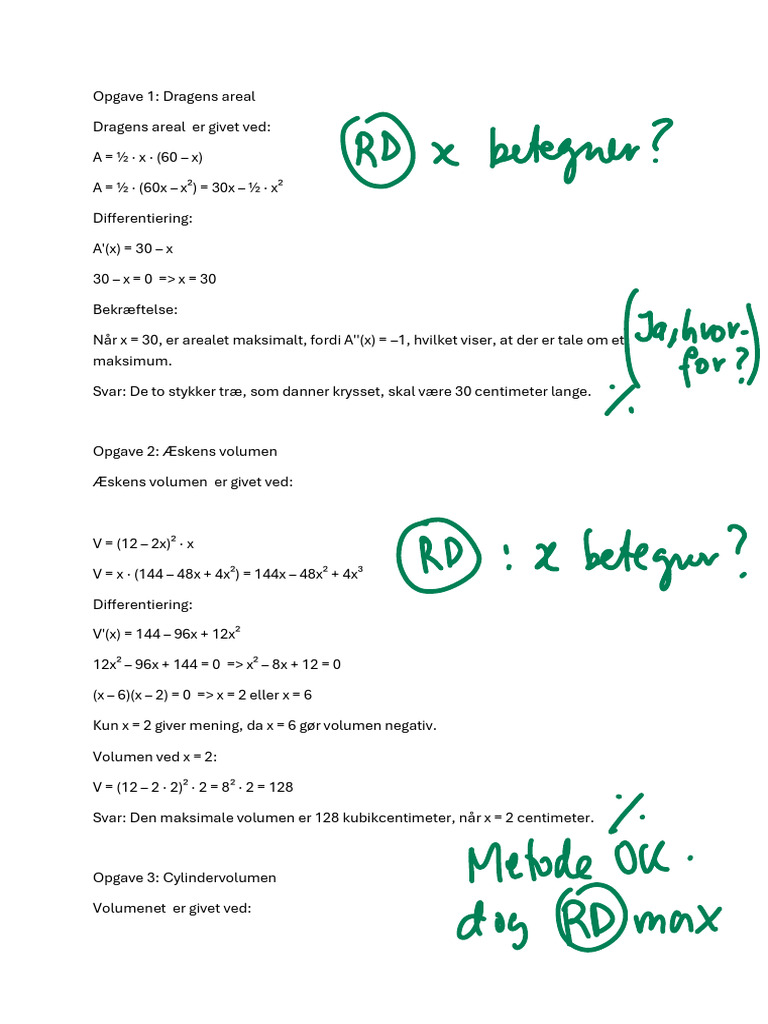 Opgave 1: Dragens areal
Dragens areal er givet ved:
RD x betegner?
A = ½ · x · (60 – x)
A = ½ · (60x – x²) = 30x – ½ · x²
Differentiering:
A'(x) = 30 – x
30 – x = 0 => x = 30
Bekræftelse:
Når x = 30, er arealet maksimalt, fordi A''(x) = –1, hvilket viser, at der er tale om et
maksimum.
(Ja, hvor-
for?)
Svar: De to stykker træ, som danner krysset, skal være 30 centimeter lange.
٪
Opgave 2: Æskens volumen
Æskens volumen er givet ved:
V = (12 – 2x)² · x
RD : x betegner?
V = x · (144 – 48x + 4x²) = 144x – 48x² + 4x³
Differentiering:
V'(x) = 144 – 96x + 12x²
12x² – 96x + 144 = 0 => x² – 8x + 12 = 0
(x – 6)(x – 2) = 0 => x = 2 eller x = 6
Kun x = 2 giver mening, da x = 6 gør volumen negativ.
Volumen ved x = 2:
V = (12 – 2 · 2)² · 2 = 8² · 2 = 128
Svar: Den maksimale volumen er 128 kubikcentimeter, når x = 2 centimeter.
٪
Metode OK.
dog RD max
Opgave 3: Cylindervolumen
Volumenet er givet ved: